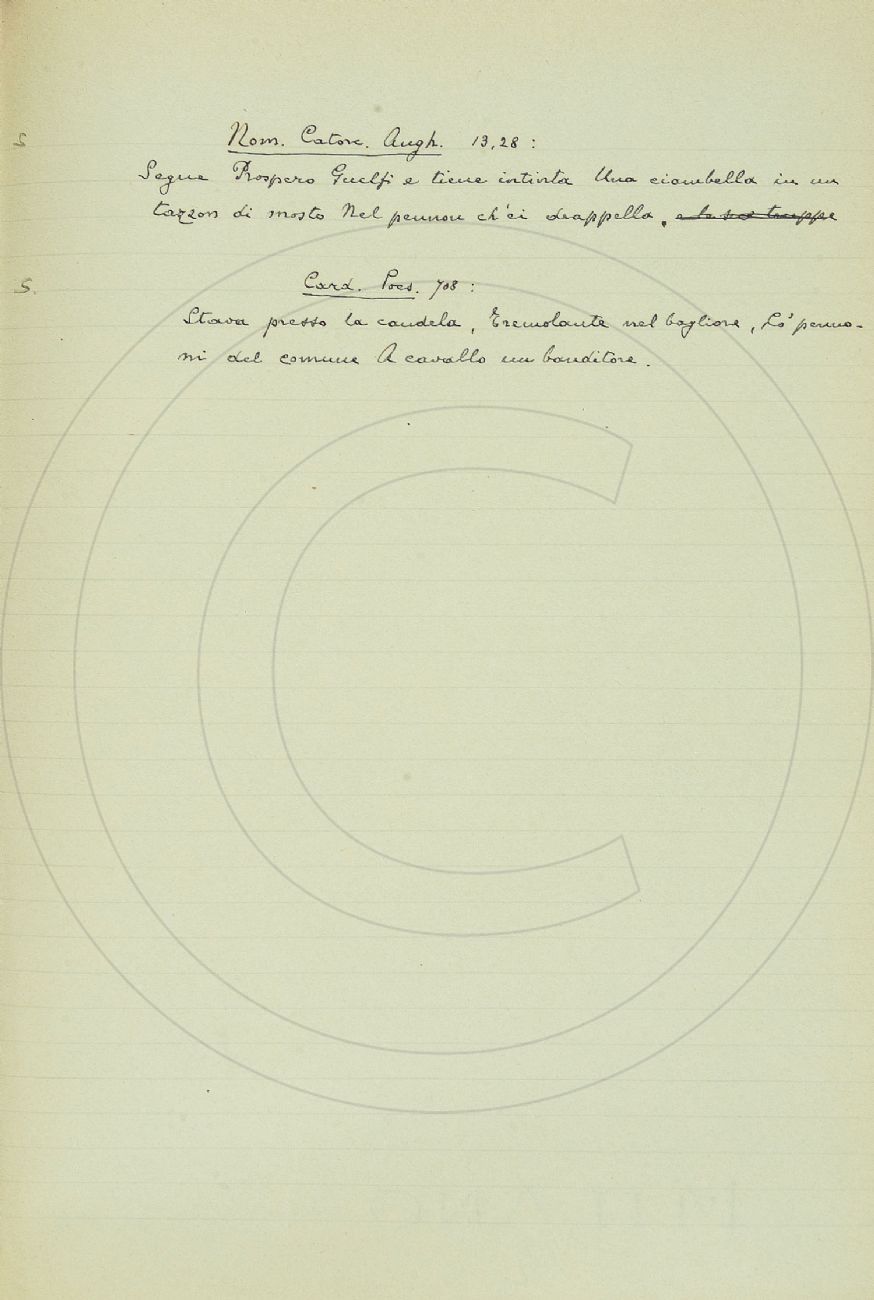 S Nom. Cator. Angh. 13,28 :
Segue Prospero Guelfi e tiene intinta Una ciambella in un
tazzon di mosto Nel pennon ch'ei drappella,
S. Card. Poes. 708 :
Stava presso la candela, Tremolante nel bagliore, Co' penno-
ni del comune A cavallo un banditore.